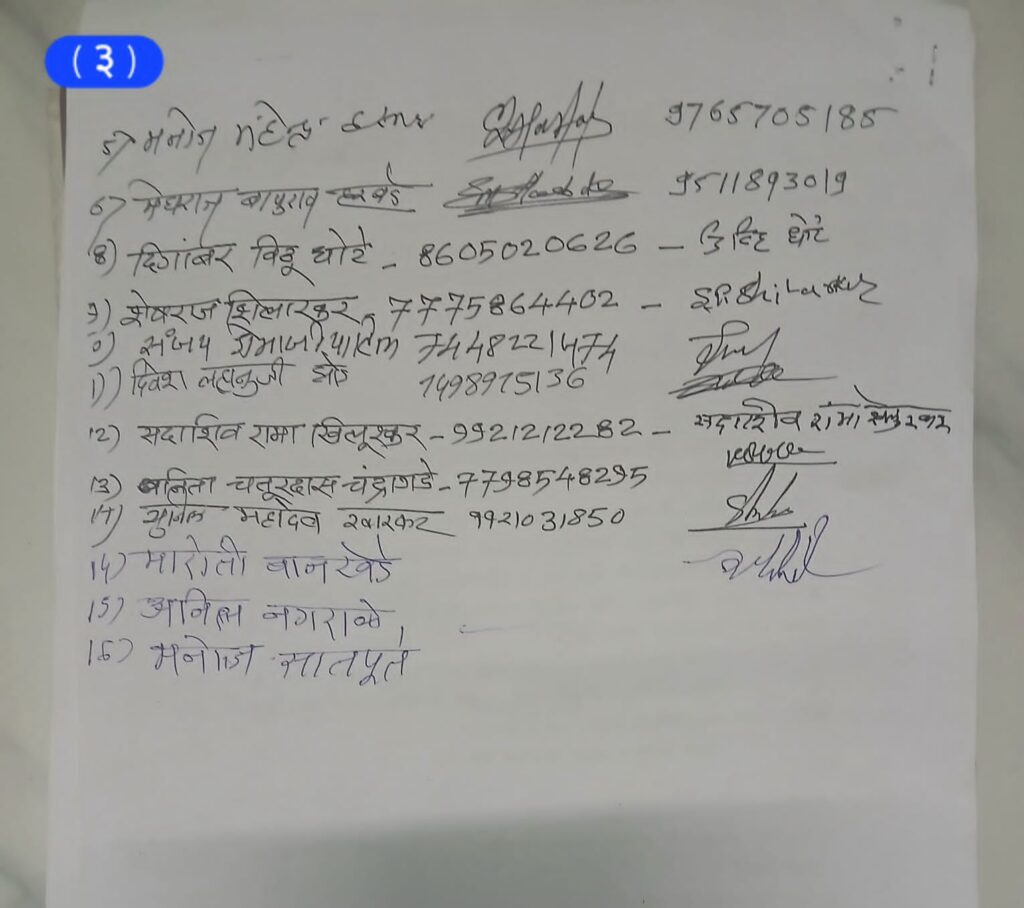 (३)
5) मनोज 9765705185
6) मेघराज बापुराव 9511893019
8) दिगांबर विठू धोटे - 8605020626 -
9) शेषराज शिलारकर - 7775864402 -
0) संजय 7448221474
11) दिवेश लहानुजी 7498975136
12) सदाशिव रामा खिलूरकर - 9921212282 - सदाशीव रामा
13) वनिता चतूरदास चंद्रागडे - 7798548295
14) सुनिल महादेव खारकर 9921031850
14) मारोती वानखेडे
15) अनिल नगराळे
16) मनोज सातपूते